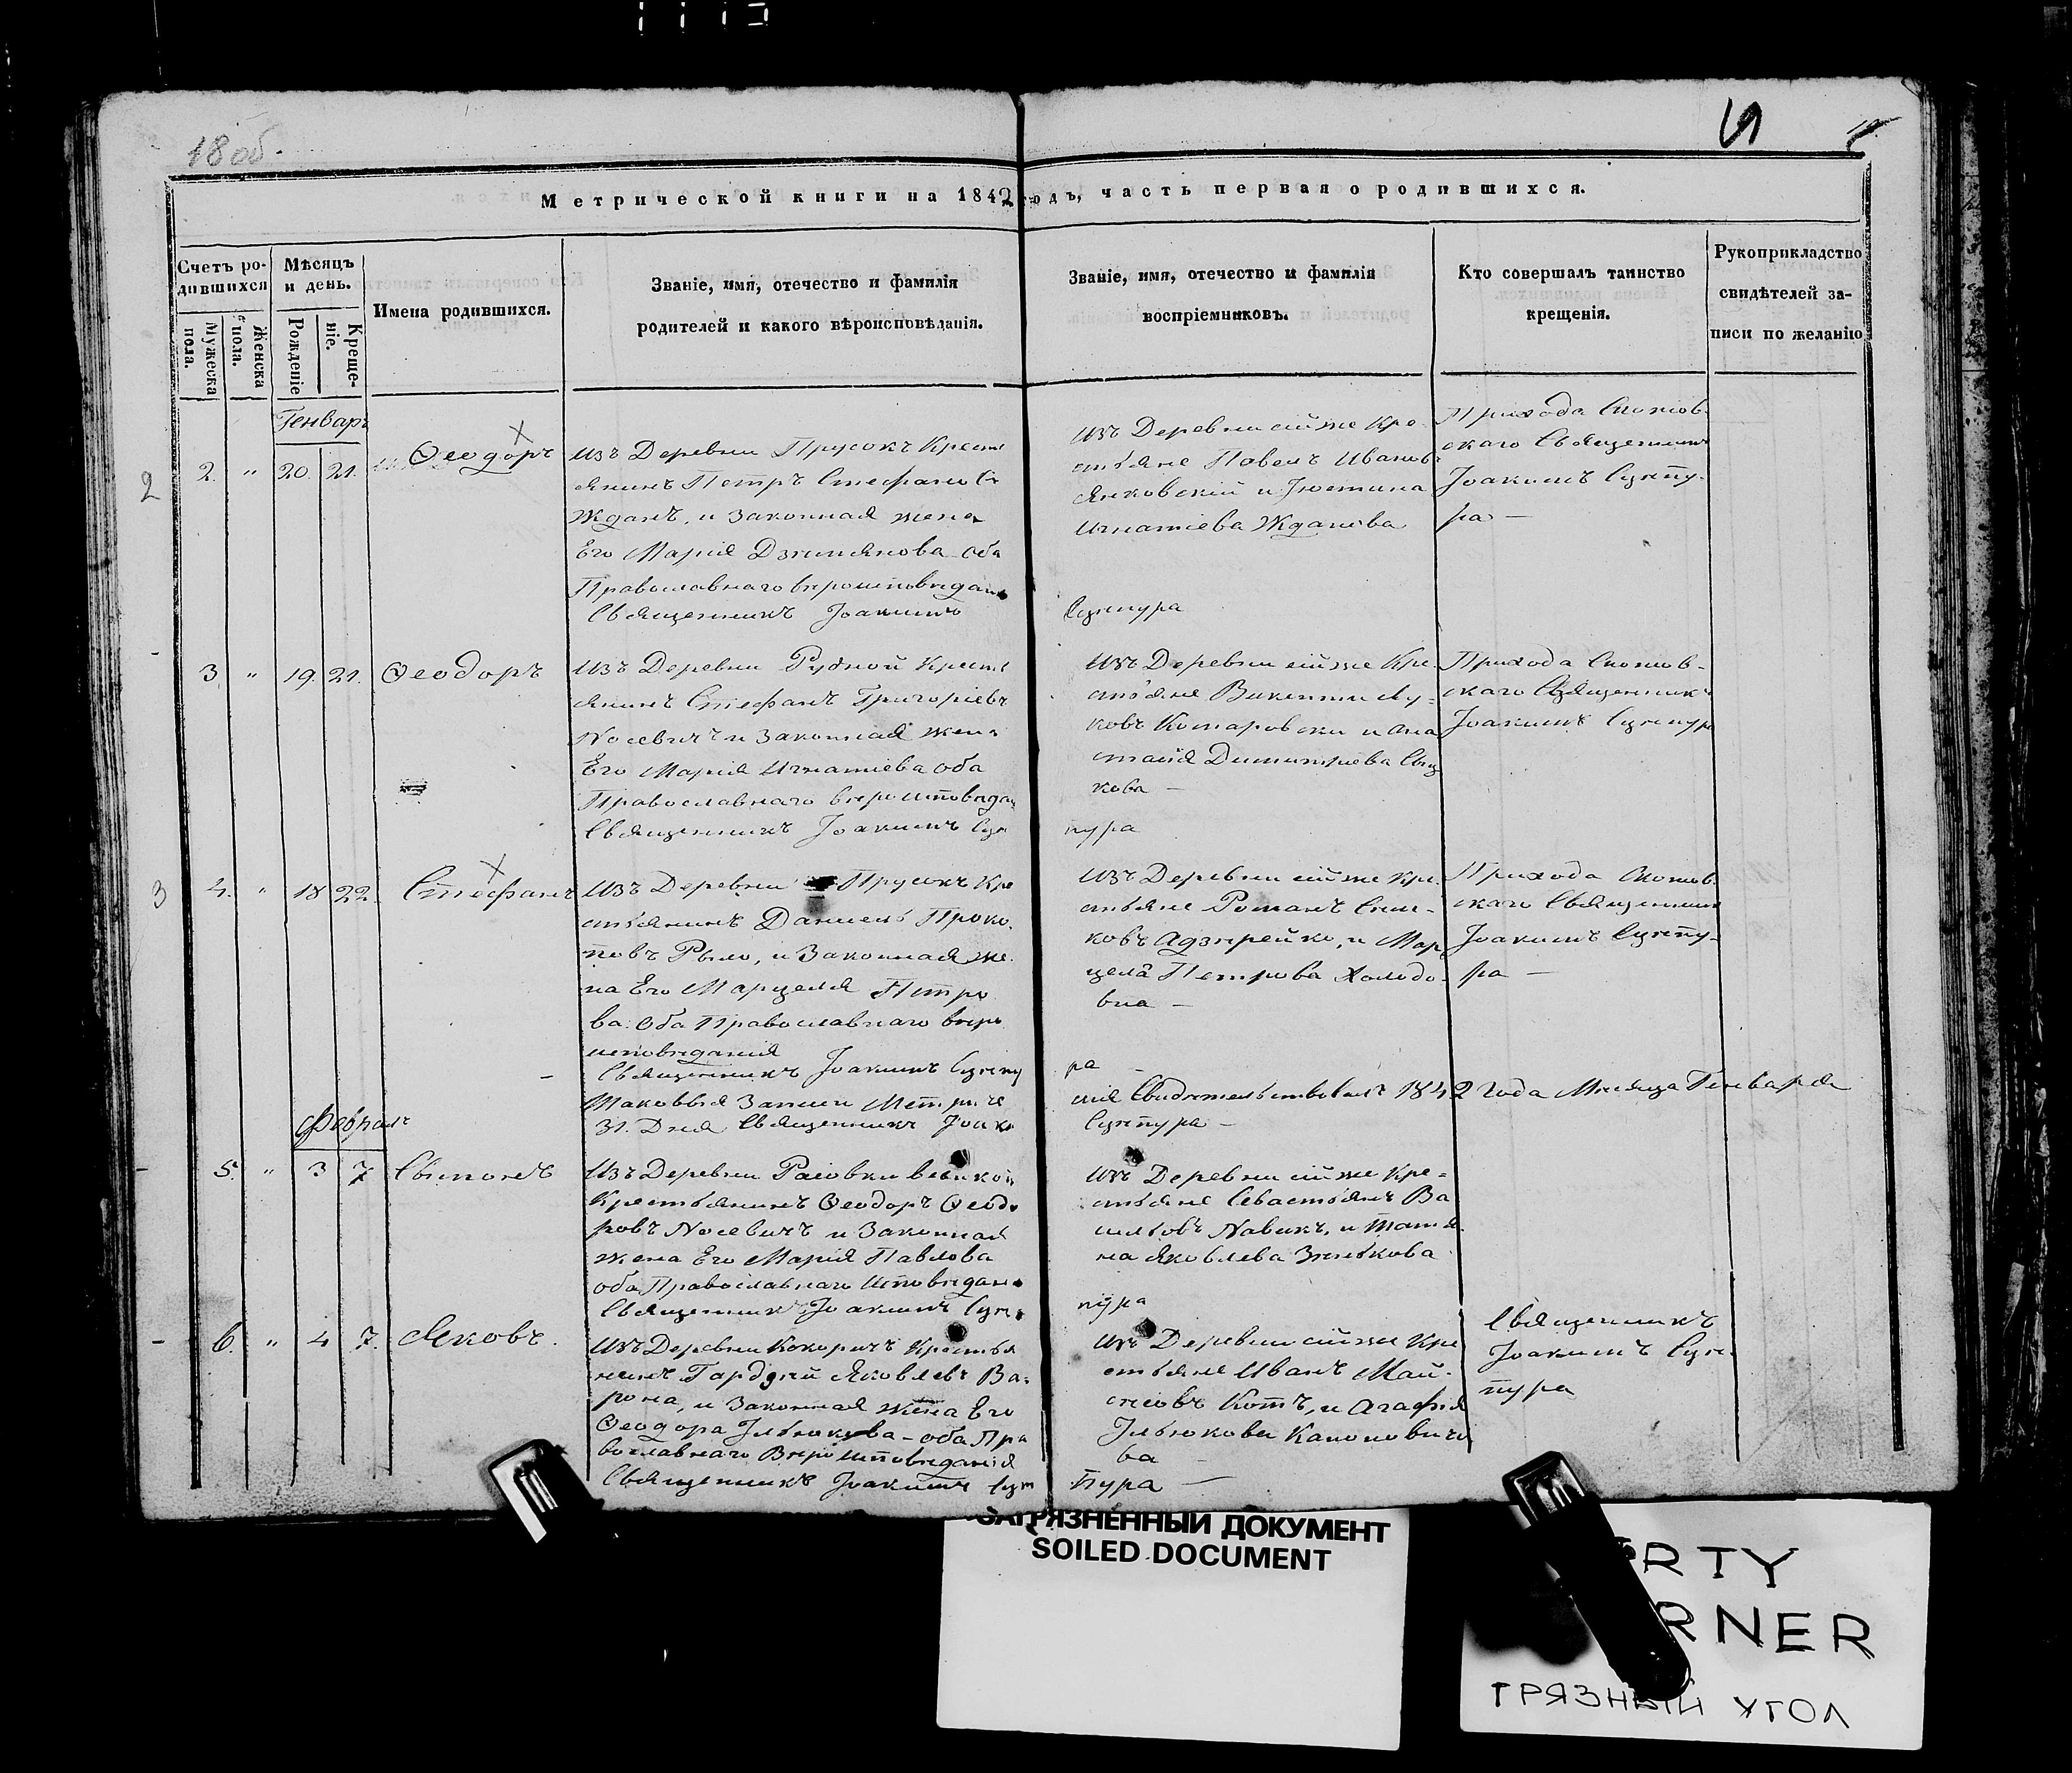 18 об.
Метрической книги на 1842 годъ, часть первая о родившихся.
Счетъ ро-
дившихся
Мужеска
пола.
Женска
пола.
Мѣсяцъ
и день.
Рожденіе
Креще-
ніе.
Имена родившихся.
Званіе, имя, отечество и фамилія
родителей и какого вѣроисповѣданія.
Званіе, имя, отечество и фамилія
воспріемниковъ.
Кто совершалъ таинство
крещенія.
Рукоприкладство
свидѣтелей за-
писи по желанію
Генварь
2
2. " 20. 21.
Ѳеодоръ
Изъ Деревни Прусокъ Крест
янинъ Петръ Стефано
Жданъ, и Законная жена
Его Марія оба
Православнаго вѣроисповѣдан
Священникъ Іоакимъ
Изъ Деревни сій же Кре
стьяне Павелъ Иванов
Янковскій и Іюстина
Игнатіева Жданова
Сцепура
Прихода
скаго Священник
Іоакимъ Сцепу-
ра —
3 " 19. 21.
Ѳеодоръ
Изъ Деревни Рудной Крест
янинъ Стефанъ Григоріевъ
Носевичъ и Законная жена
Его Марія Игнатіева оба
Православнаго вѣроисповѣдан
Священникъ Іоакимъ Сце
Изъ Деревни сій же Кре-
стьяне Викенти Лу-
ковъ Комаровски и Ана
стасія Димитріева
кова —
пура
Прихода
скаго Священник
Іоакимъ Сцепура
3
4. " 18 22.
Стефанъ
Изъ Деревни Прусокъ Кре
стьянинъ Даніель Проко.
повъ Рыло, и Законная же.
на Его Марцеля Петро
ва. Оба Православнаго вѣро
исповѣданія
Священникъ Іоакимъ Сцепу
Изъ Деревни сій же Кре.
стьяне Романъ
ковъ и Мар
целя Петрова Холодо-
вна —
ра —
Прихода
скаго Священник
Іоакимъ Сцепу-
ра —
Таковыя Записи Метриче
скія Свидѣтельствовалъ 1842 года Мѣсяца Генваря
31. Дня Священникъ Іоаки
Сцепура —
Февраль
5. " 3 7
Сымонъ
Изъ Деревни великой
Крестьянинъ Ѳеодоръ Ѳеодо
ровъ Носевичъ и Законная
жена Его Марія Павлова
оба Православнаго Исповѣдан
Священникъ Іоакимъ Сце
Изъ Деревни сій же Кре-
стьяне Севастьянъ Ва
сильовъ Навикъ, и Татія
на Яковлева Зенькова
пура
6. " 4 7.
Яковъ.
Изъ Деревни Кокоричъ Крестья
нинъ Гордѣй Яковлевъ Ва-
рона, и Законная жена Его
Ѳеодора Ільюкова - оба Пра
вославнаго Вѣроисповѣданія
Священникъ Іоакимъ Сце
Изъ Деревни сій же Кре
стьяне Иванъ Май-
сеовъ Котъ, и Агафія
Ільюкова Кононовичо
ва
пура —
Священникъ
Іоакимъ Сце-
пура
ЗАГРЯЗНЕННЫЙ ДОКУМЕНТ
SOILED DOCUMENT
RTY
RNER
ГРЯЗНЫЙ УГОЛ